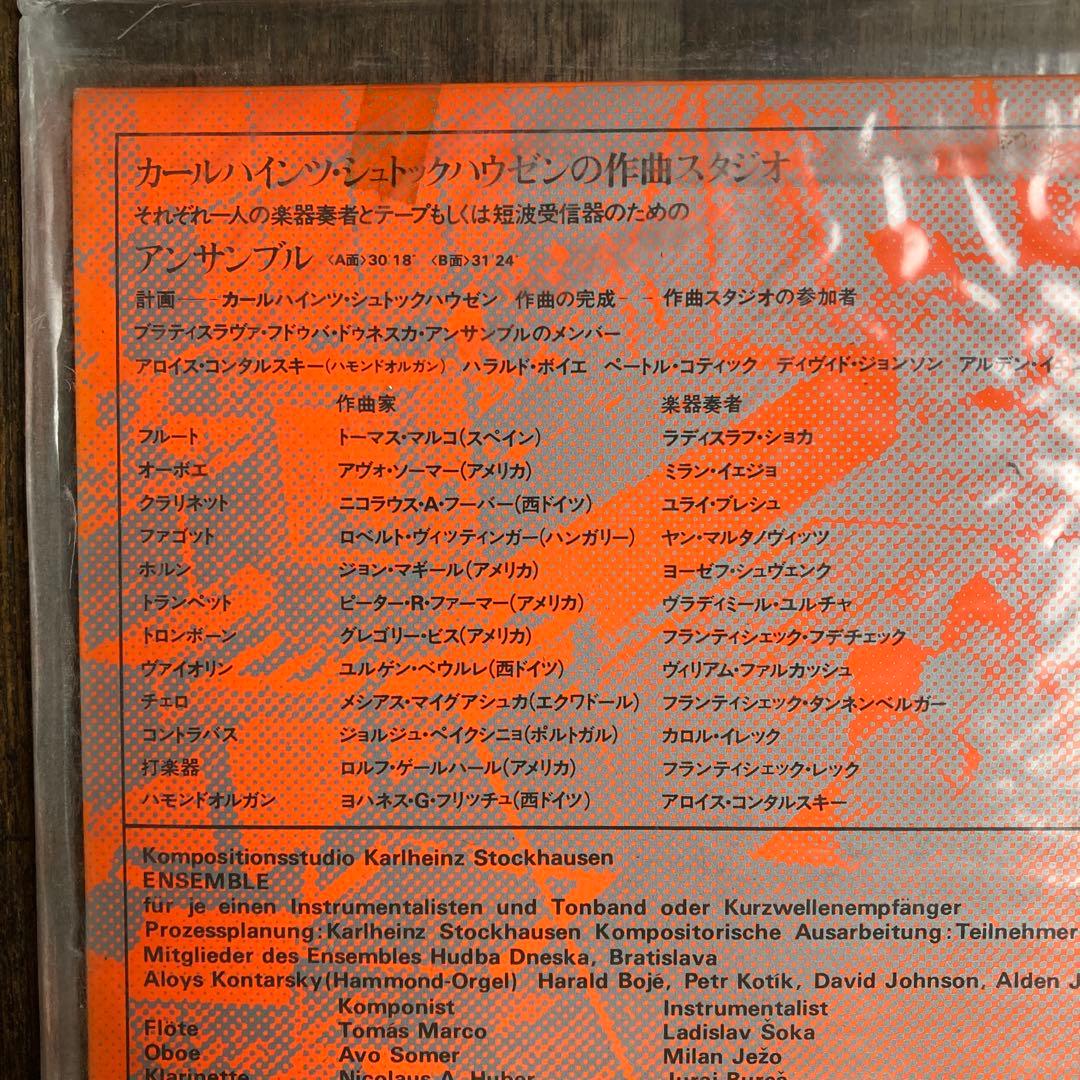 カールハインツ・シュトックハウゼンの作曲スタジオ
それぞれ一人の楽器奏者とテープもしくは短波受信器のための
アンサンブル 〈A面〉30′18″ 〈B面〉31′24″
計画——カールハインツ・シュトックハウゼン 作曲の完成——作曲スタジオの参加者
ブラティスラヴァ・フドゥバ・ドゥネスカ・アンサンブルのメンバー
アロイス・コンタルスキー(ハモンドオルガン) ハラルド・ボイエ ペートル・コティック ディヴィド・ジョンソン アルデン・イ
作曲家 楽器奏者
フルート トーマス・マルコ(スペイン) ラディスラフ・ショカ
オーボエ アヴォ・ソーマー(アメリカ) ミラン・イェジョ
クラリネット ニコラウス・A・フーバー(西ドイツ) ユライ・ブレシュ
ファゴット ロベルト・ヴィツティンガー(ハンガリー) ヤン・マルタノヴィッツ
ホルン ジョン・マギール(アメリカ) ヨーゼフ・シュヴェンク
トランペット ピーター・R・ファーマー(アメリカ) ヴラディミール・ユルチャ
トロンボーン グレゴリー・ビス(アメリカ) フランティシェック・フデチェック
ヴァイオリン ユルゲン・ベウルレ(西ドイツ) ヴィリアム・ファルカッシュ
チェロ メシアス・マイグアシュカ(エクワドール) フランティシェック・タンネンベルガー
コントラバス ジョルジュ・ペイクシニョ(ポルトガル) カロル・イレック
打楽器 ロルフ・ゲールハール(アメリカ) フランティシェック・レック
ハモンドオルガン ヨハネス・G・フリッチュ(西ドイツ) アロイス・コンタルスキー
Kompositionsstudio Karlheinz Stockhausen
ENSEMBLE
für je einen Instrumentalisten und Tonband oder Kurzwellenempfänger
Prozessplanung:Karlheinz Stockhausen Kompositorische Ausarbeitung:Teilnehmer
Mitglieder des Ensembles Hudba Dneska, Bratislava
Aloys Kontarsky(Hammond-Orgel) Harald Bojé, Petr Kotík, David Johnson, Alden J
Komponist Instrumentalist
Flöte Tomás Marco Ladislav Šoka
Oboe Avo Somer Milan Ježo
Klarinette Nicolaus A. Huber Juraj Bureš